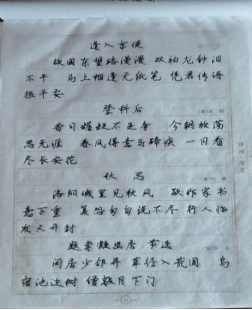 逢入京使
故园东望路漫漫 双袖龙钟泪
不干 马上相逢无纸笔 凭君传语
报平安
登科后
昔日龌龊不足夸 今朝放荡
思无涯 春风得意马蹄疾 一日看
尽长安花
秋思
洛阳城里见秋风 欲作家书
意万重 复恐匆匆说不尽 行人临
发又开封
题李凝幽居 节选
闲居少邻并 草径入荒园 鸟
宿池边树 僧敲月下门